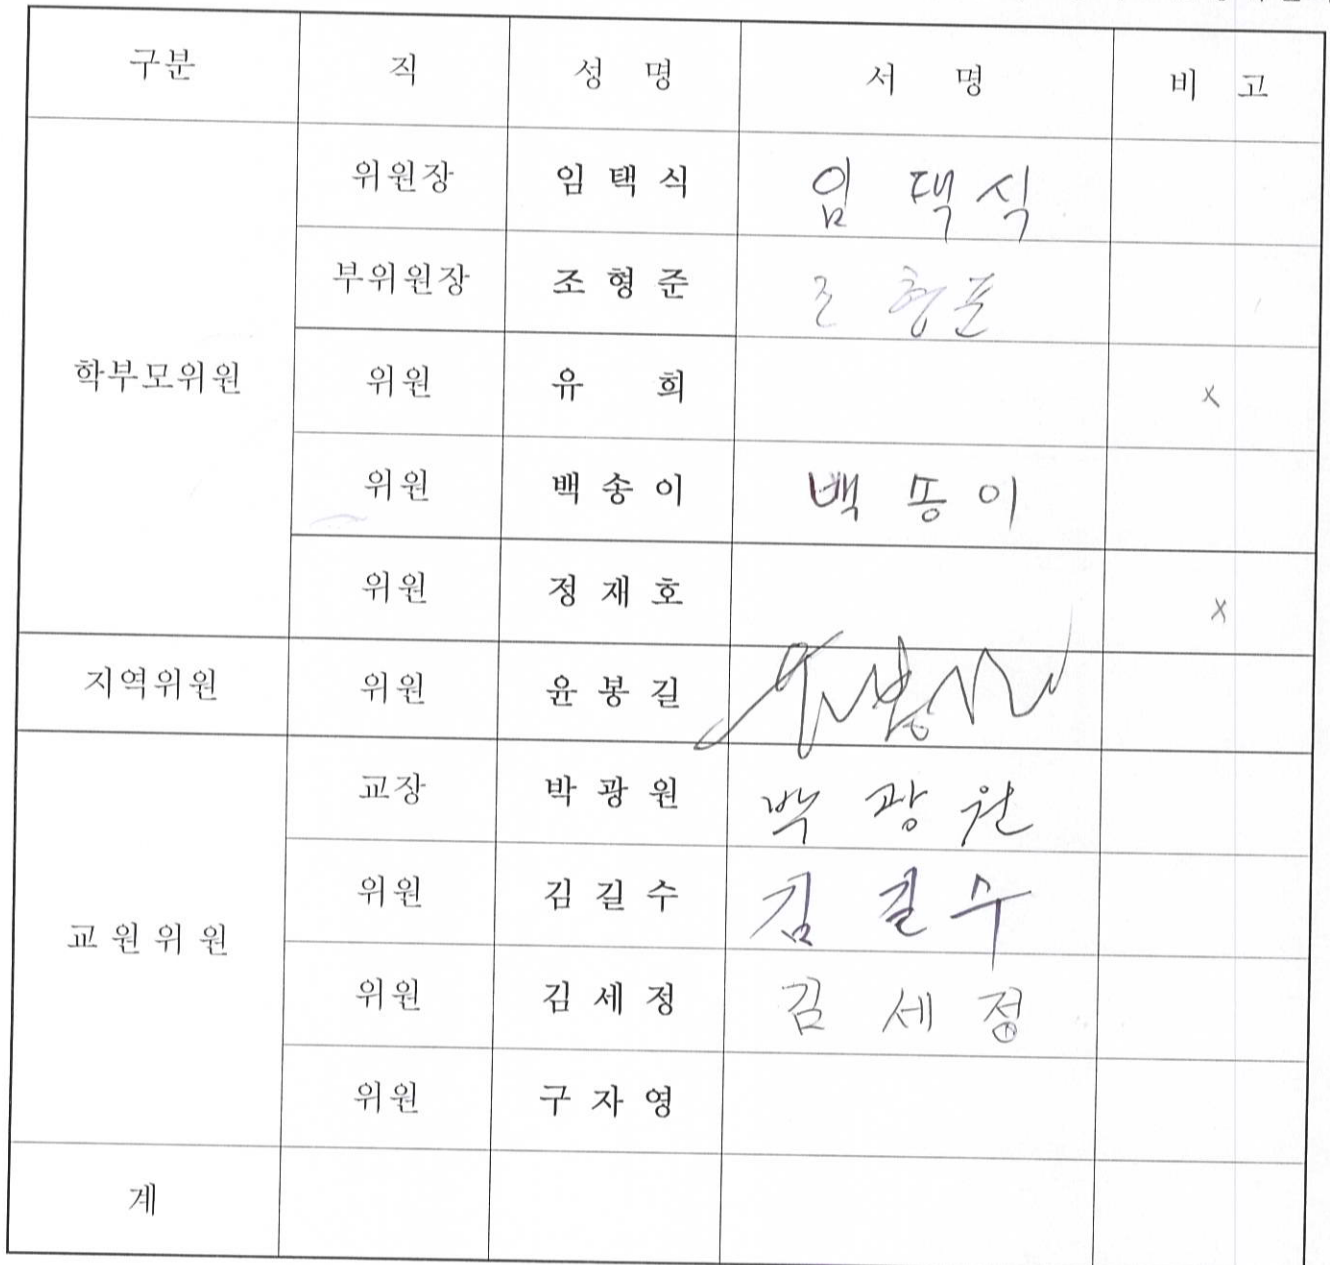 구분 직 성 명 서 명 비 고
위원장 임 택 식 임 택 식
부위원장 조 형 준 조 형 준
학부모위원 위원 유 희 x
위원 백 송 이 백 송 이
위원 정 재 호 x
지역위원 위원 윤 봉 길
교장 박 광 원 박 광 원
위원 김 길 수 김 길 수
교 원 위 원
위원 김 세 정 김 세 정
위원 구 자 영
계